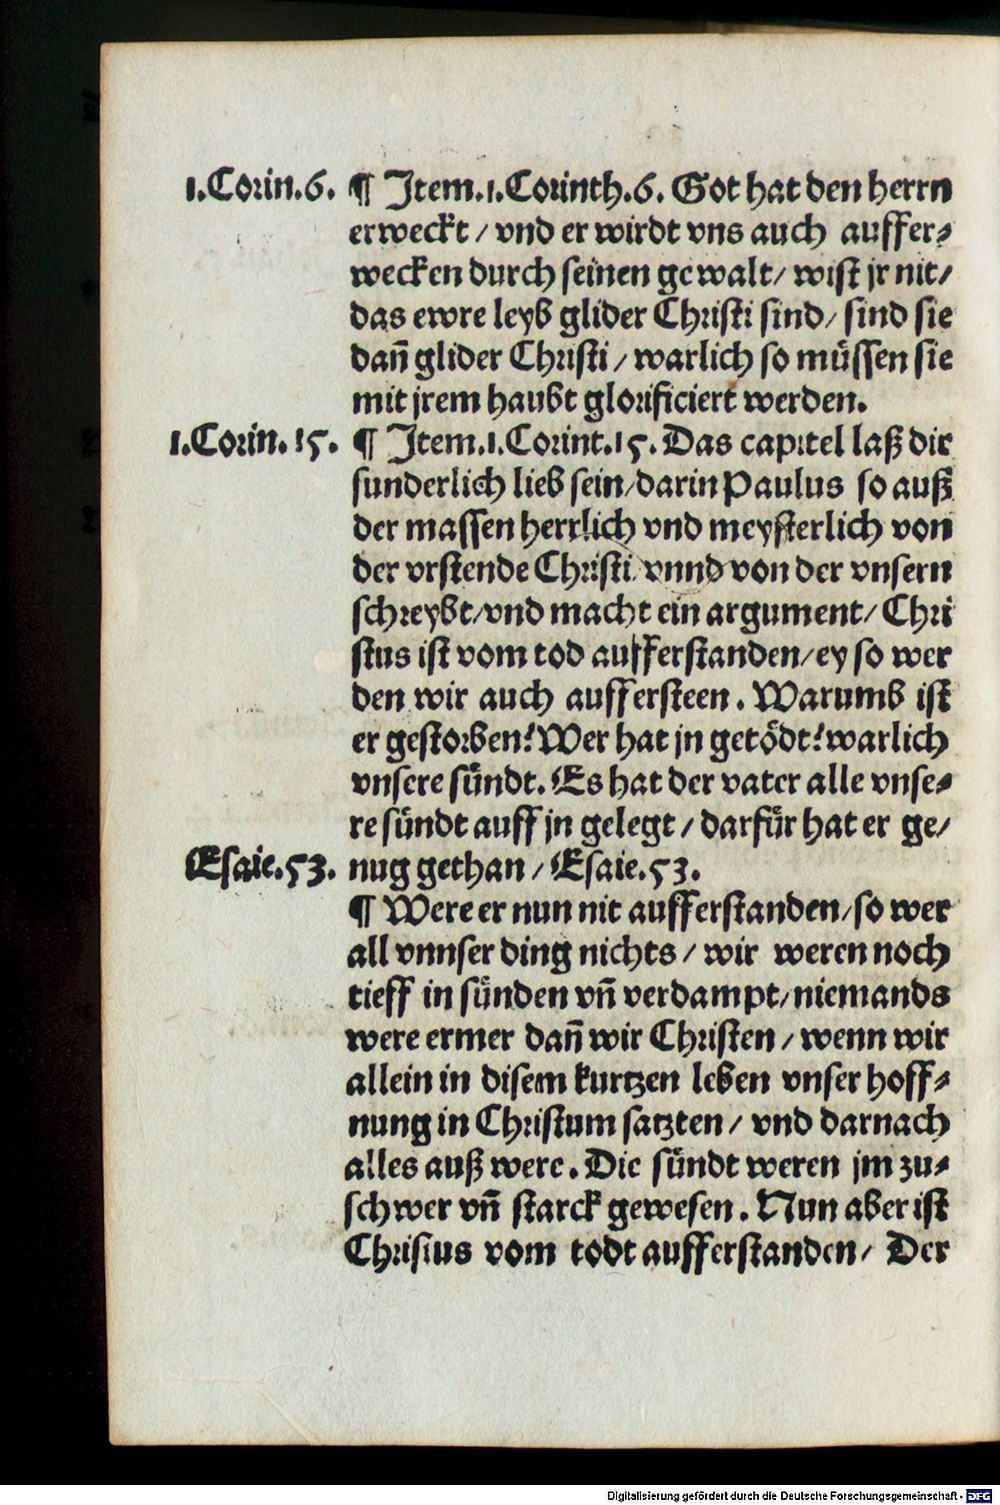 1.Corin.6. ¶ Item.1.Corinth.6. Got hat den herrn
erweckt / vnd er wirdt vns auch auffer⸗
wecken durch seinen gewalt / wist jr nit /
das ewre leyb glider Christi sind / sind sie
dañ glider Christi / warlich so müssen sie
mit jrem haubt glorificiert werden.
1.Corin. 15. ¶ Item.1.Corint.15. Das capitel laß dir
sunderlich lieb sein / darin Paulus so auß
der massen herrlich vnd meysterlich von
der vrstende Christi vnnd von der vnsern
schreybt / vnd macht ein argument / Chri
stus ist vom tod aufferstanden / ey so wer
den wir auch aufferstee​n. Warumb ist
er gestorben? Wer hat jn getödt? warlich
vnsere sündt. Es hat der vater alle vnse⸗
re sündt auff jn gelegt / darfür hat er ge /
Esaie.53. nug gethan / Esaie.53.
¶ Were er nun nit aufferstanden / so wer
all vnnser ding nichts / wir weren noch
tieff in sünden vñ verdampt / niemands
were ermer dañ wir Christen / wenn wir
allein in disem kurtzen leben vnser hoff⸗
nung in Christum satzten / vnd darnach
alles auß were. Die sündt weren jm zu⸗
schwer vñ starck gewesen. Nun aber ist
Christus vom todt aufferstanden / Der
Digitalisierung gefördert durch die Deutsche Forschungsgemeinschaft - DFG